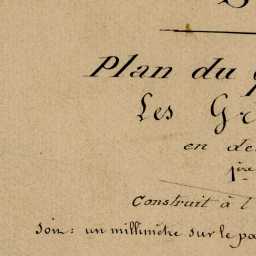 Plan du
Les Gr
en de
1ère
Construit à l
soit: un millimètre sur le pa